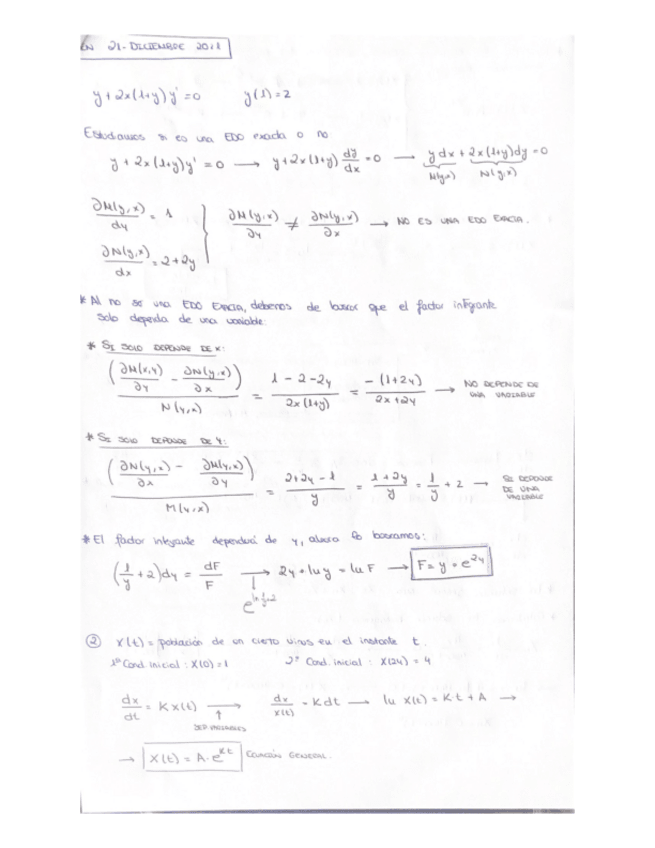 EN 21-DICIEMBRE 2021
y + 2x(1+y)y' = 0 y(1) = 2
Estudiamos si es una EDO exacta o no
y + 2x(1+y)y' = 0 → y + 2x(1+y) dy/dx = 0 → y dx + 2x(1+y)dy = 0
M(y,x) N(y,x)
∂M(y,x)/dy = 1
∂M(y,x)/∂y ≠ ∂N(y,x)/∂x → NO ES UNA EDO EXACTA.
∂N(y,x)/dx = 2 + 2y
* Al no ser una EDO EXACTA, debemos de buscar que el factor integrante
solo dependa de una variable:
* SI SOLO DEPENDE DE X:
(∂M(x,y)/∂y - ∂N(y,x)/∂x) / N(y,x) = (1 - 2 - 2y)/(2x(1+y)) = -(1+2y)/(2x+2y) → NO DEPENDE DE UNA VARIABLE
* SI SOLO DEPENDE DE Y:
(∂N(y,x)/∂x - ∂M(y,x)/∂y) / M(y,x) = (2+2y-1)/y = (1+2y)/y = 1/y + 2 → SI DEPENDE DE UNA VARIABLE
* El factor integrante dependerá de y, ahora lo buscamos:
(1/y + 2)dy = dF/F → 2y + ln y = ln F → F = y · e^2y
② X(t) = población de un cierto virus en el instante t.
1ª Cond. inicial : X(0) = 1 2ª Cond. inicial : X(24) = 4
dx/dt = K X(t) → dx/x(t) = K dt → ln X(t) = Kt + A →
↑
SEP. VARIABLES
→ X(t) = A · e^Kt ECUACIÓN GENERAL.